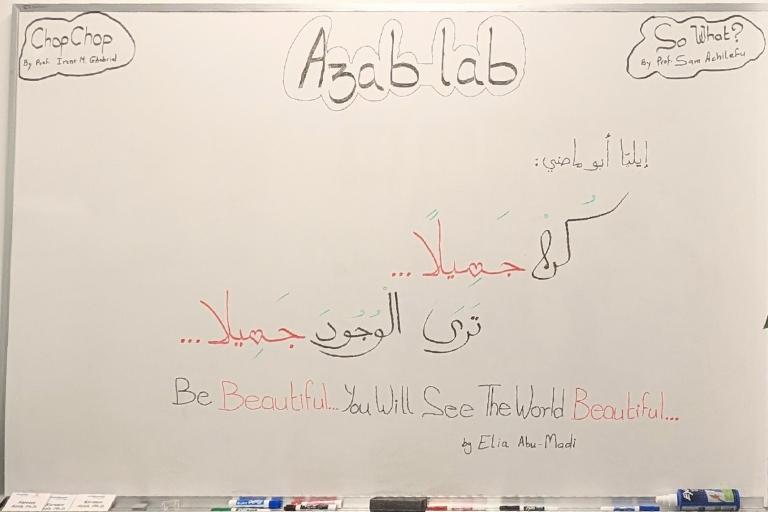 ChopChop
By Prof. Irene M. Ghobrial
Azab lab
So What?
By Prof. Sam Achilefu
إيليا أبو ماضي:
كُنْ جَمِيلًا...
تَرَى الْوُجُودَ جَمِيلا...
Be Beautiful... You Will See The World Beautiful...
by Elia Abu-Madi